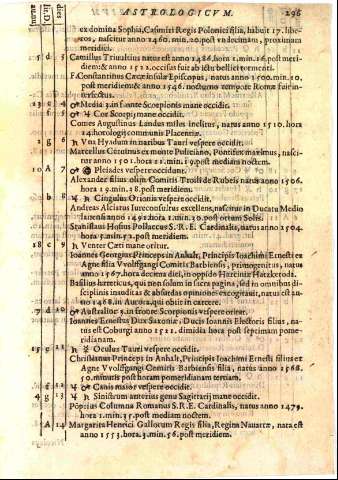 ASTROLOGICVM. 296
ex domina Sophia, Casimiri Regis Polonici filia, habuit 17. liberos, nascitur anno 1460. min. 20. post vndecimam, proximam
meridiei.
15 d 5 Camillus Triuultius natus est anno 1486. hora 1. min. 16. post meridiem: & anno 1522. occisus fuit ab ictu bellici tormenti.
F. Constantinus Episcopus, natus anno 1500. min. 10.
post meridiem & anno 1546. nocturno tempore Romæ fuit interfectus.
13 e 4 ♂ Media in fronte Scorpionis mane occidit.
f ♃ ♂ Cor Scorpij mane occidit.
Comes Augustinus Landus miles inclitus, natus anno 1510. hora
14. horologij communis Placentiæ.
2 g 6 ♄ Vna Hyadum in naribus Tauri vespere occidit.
Marcellus Ceruinus ex monte Policiano, Pontifex maximus, nascitur anno 1501. hora 11. min. 19. post mediam noctem.
10 A 7 ♂ Pleiades vespere occidunt.
Alexander filius olim Comitis Troili de Rubeis natus anno 1506.
hora 19. min. 18. post meridiem.
b 8 ♃ ♄ Cingulus Orionis vespere occidit.
Andreas Alciatus Iurisconsultus excellens, nascitur in Ducatu Mediolanensi anno 1492. hora 1. min. 30. post ortum Solis.
Stanislaus Hosius Pollaccus S. R. E. Cardinalis, natus anno 1504.
hora 5. min. 52. post meridiem.
18 c 9 ♄ Venter Cæti mane oritur.
Ioannes Georgius Princeps in Anhalt, Principis Ioachimi Ernesti ex
Agne filia Vvolffgangi Comitis Barbiensis, primogenitus, natus
anno 1567. hora decima diei, in oppido Harciniæ Hatzkeroda.
Basilius hæreticus, qui non solum in sacra pagina, sed in omnibus disciplinis inauditas & absurdas opiniones excogitauit, natus est anno 1468. in Aurora, qui obiit in carcere.
7 d 10 ♂ Australior in fronte Scorpionis vespere oritur.
Ioannes Ernestus Dux Saxoniæ, Ducis Ioannis Electoris filius, natus est Coburgi anno 1521. dimidia hora post septimam pomeridianam.
15 e 11 ♄ ☿ Oculus Tauri vespere occidit.
Christianus Princeps in Anhalt, Principis Ioachimi Ernesti filius ex
Agne Vvolffgangi Comitis Barbiensis filia, natus anno 1568.
50. minutis post horam pomeridianam tertiam.
f 12 ♃ ♂ Canis maior vespere occidit.
4 g 13 ♃ ♄ Sinistrum anterius genu Sagittarij mane occidit.
Pompeius Columna Romanus S. R. E. Cardinalis, natus anno 1479.
hora 1. min. 35. post mediam noctem.
A 14 Margarita Henrici Gallorum Regis filia, Regina Nauarræ, nata est
anno 1553. hora 3. min. 56. post meridiem.